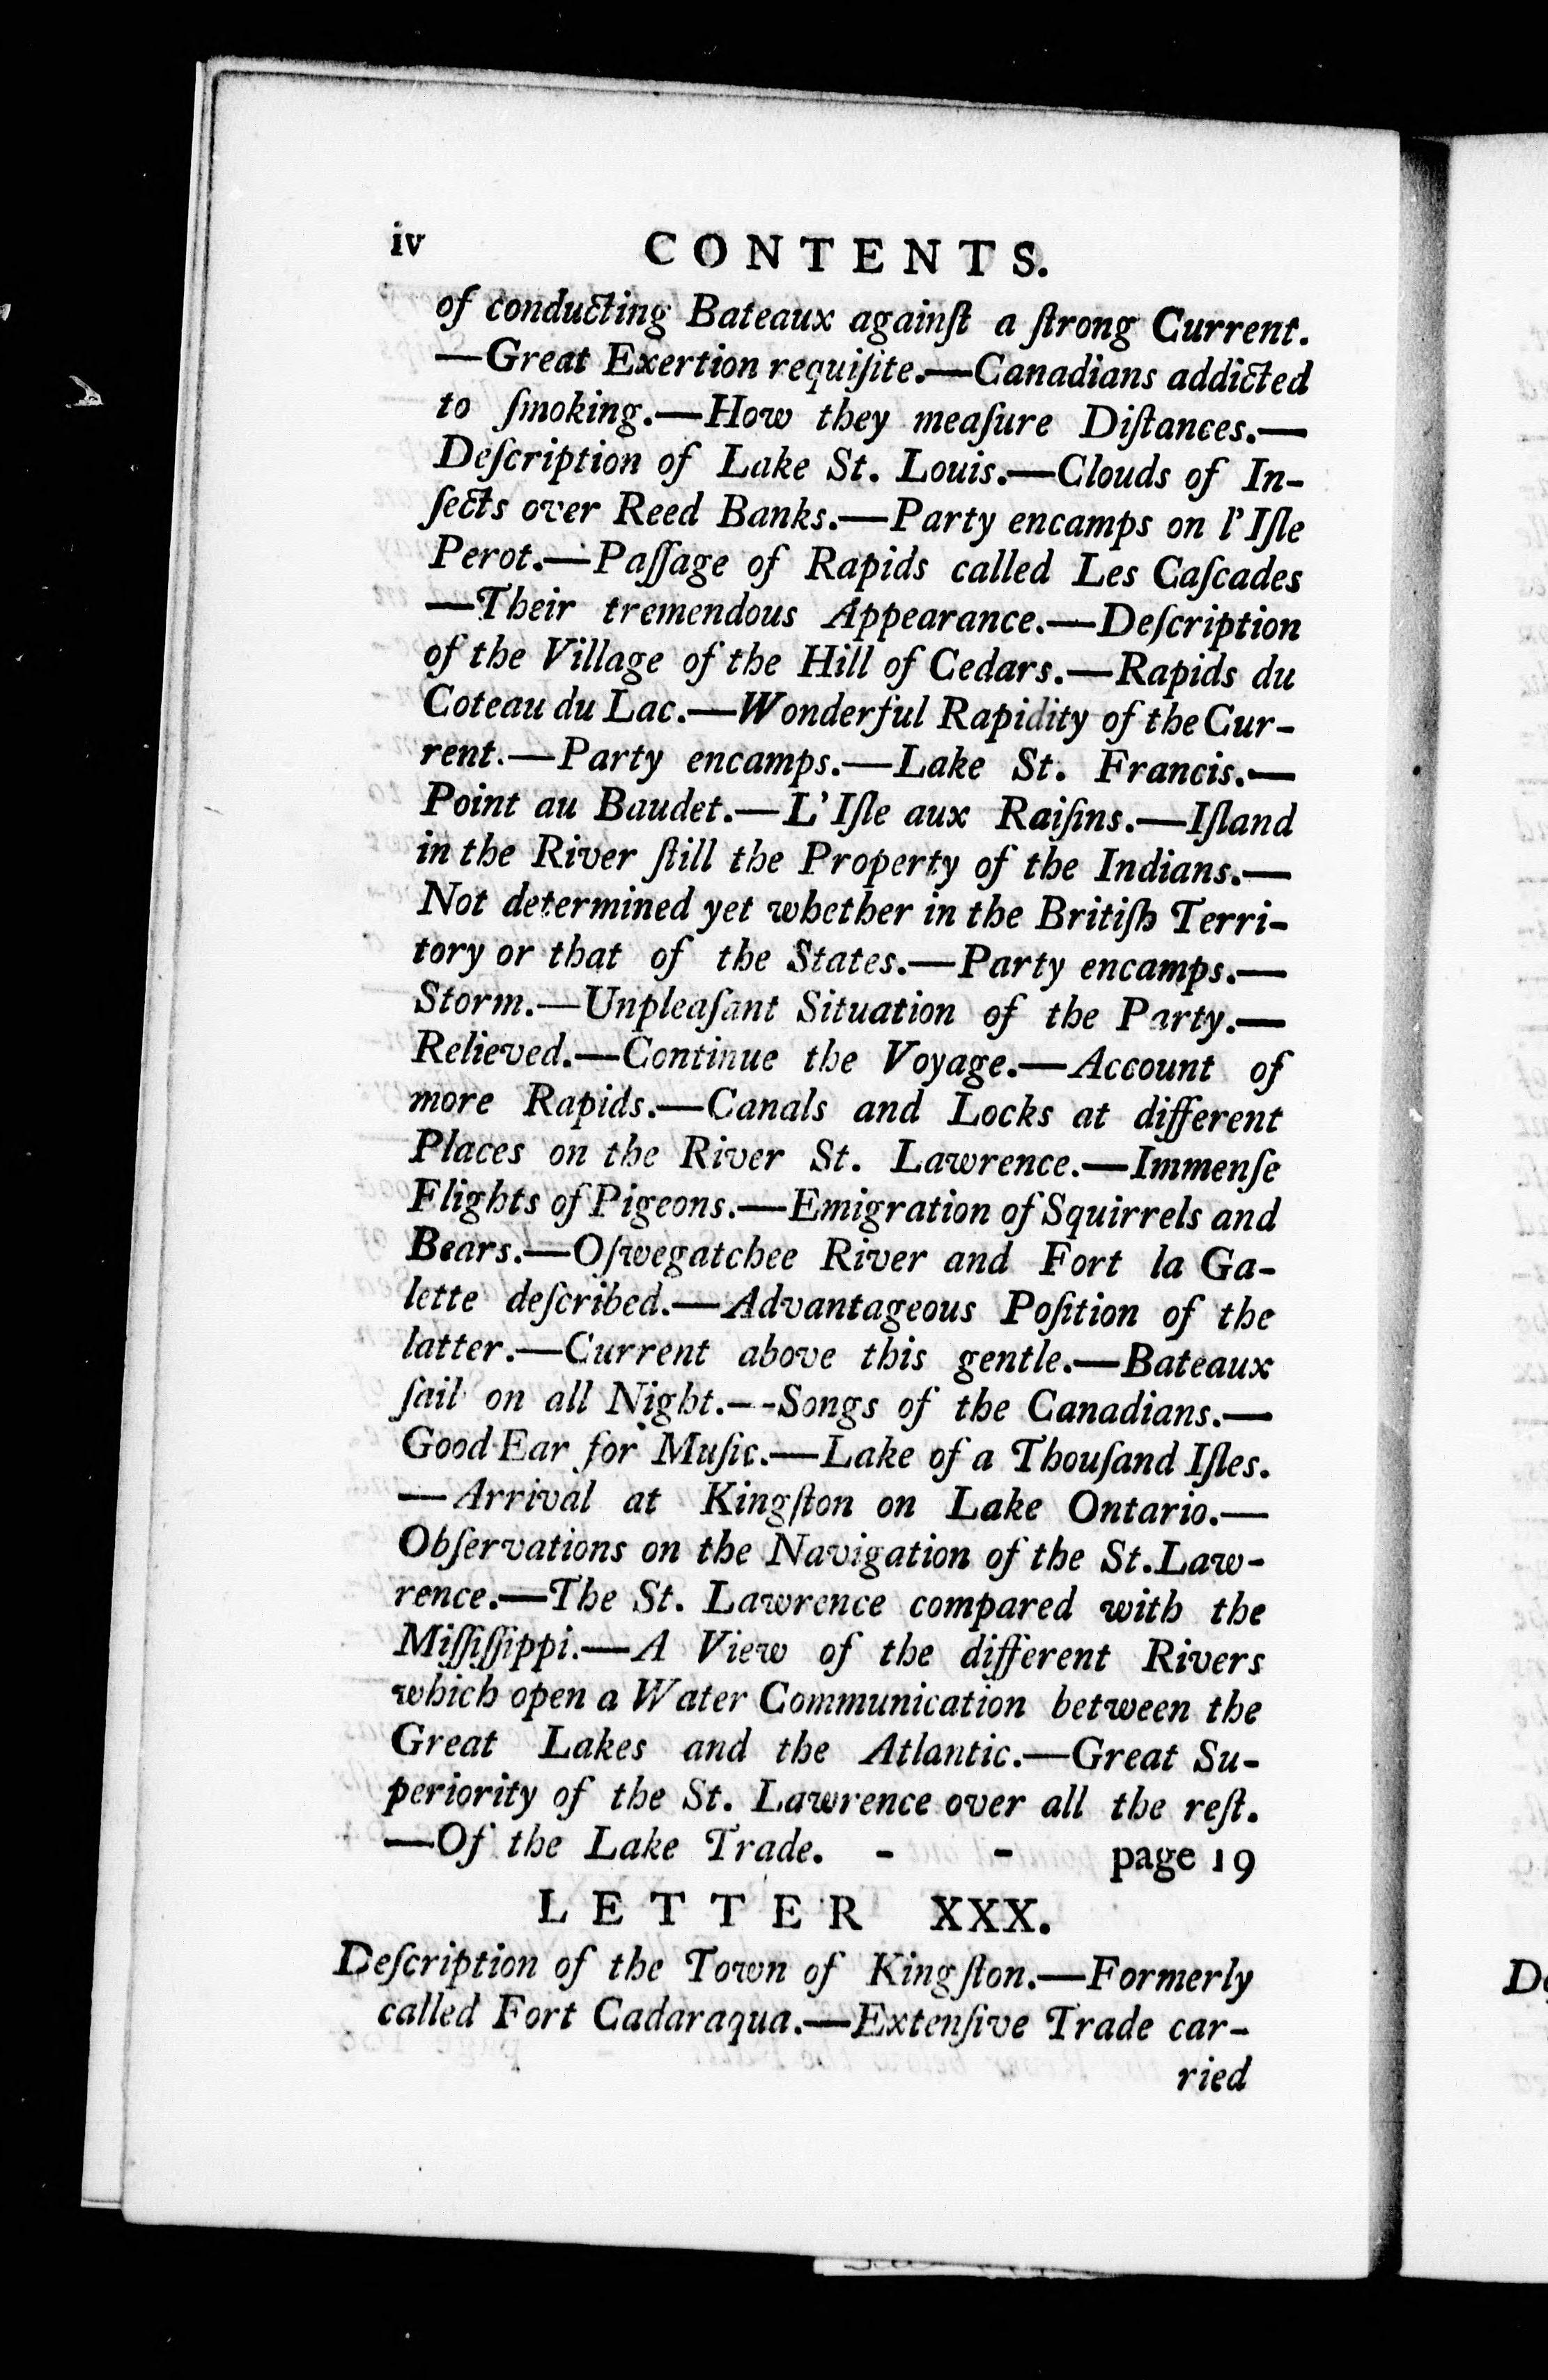 iv CONTENTS.
of conducting Bateaux againſt a ſtrong Current.
—Great Exertion requiſite.—Canadians addicted
to ſmoking.—How they meaſure Diſtances.—
Deſcription of Lake St. Louis.—Clouds of In-
ſects over Reed Banks.—Party encamps on l'Iſle
Perot.—Paſſage of Rapids called Les Caſcades
—Their tremendous Appearance.—Deſcription
of the Village of the Hill of Cedars.—Rapids du
Coteau du Lac.—Wonderful Rapidity of the Cur-
rent.—Party encamps.—Lake St. Francis.—
Point au Baudet.—L'Iſle aux Raiſins.—Iſland
in the River ſtill the Property of the Indians.—
Not determined yet whether in the Britiſh Terri-
tory or that of the States.—Party encamps.—
Storm.—Unpleaſant Situation of the Party.—
Relieved.—Continue the Voyage.—Account of
more Rapids.—Canals and Locks at different
Places on the River St. Lawrence.—Immenſe
Flights of Pigeons.—Emigration of Squirrels and
Bears.—Oſwegatchee River and Fort la Ga-
lette deſcribed.—Advantageous Poſition of the
latter.—Current above this gentle.—Bateaux
ſail on all Night.--Songs of the Canadians.—
Good Ear for Muſic.—Lake of a Thouſand Iſles.
—Arrival at Kingſton on Lake Ontario.—
Obſervations on the Navigation of the St. Law-
rence.—The St. Lawrence compared with the
Miſſiſſippi.—A View of the different Rivers
which open a Water Communication between the
Great Lakes and the Atlantic.—Great Su-
periority of the St. Lawrence over all the reſt.
—Of the Lake Trade. - - page 19
LETTER XXX.
Deſcription of the Town of Kingſton.—Formerly
called Fort Cadaraqua.—Extenſive Trade car-
ried